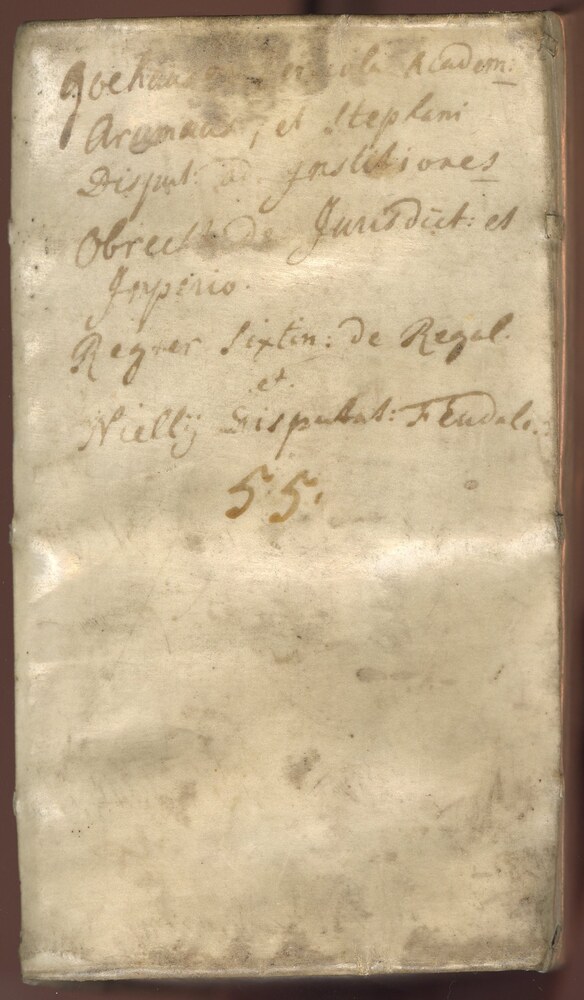 Academ:
Arumaus, et Stephani
Disput: ad Institiones
Obrecht De Jurisdict: et
Imperio.
Regner Sixtin: de Regal.
et.
Nielly Disputat: Feudale.:
55.